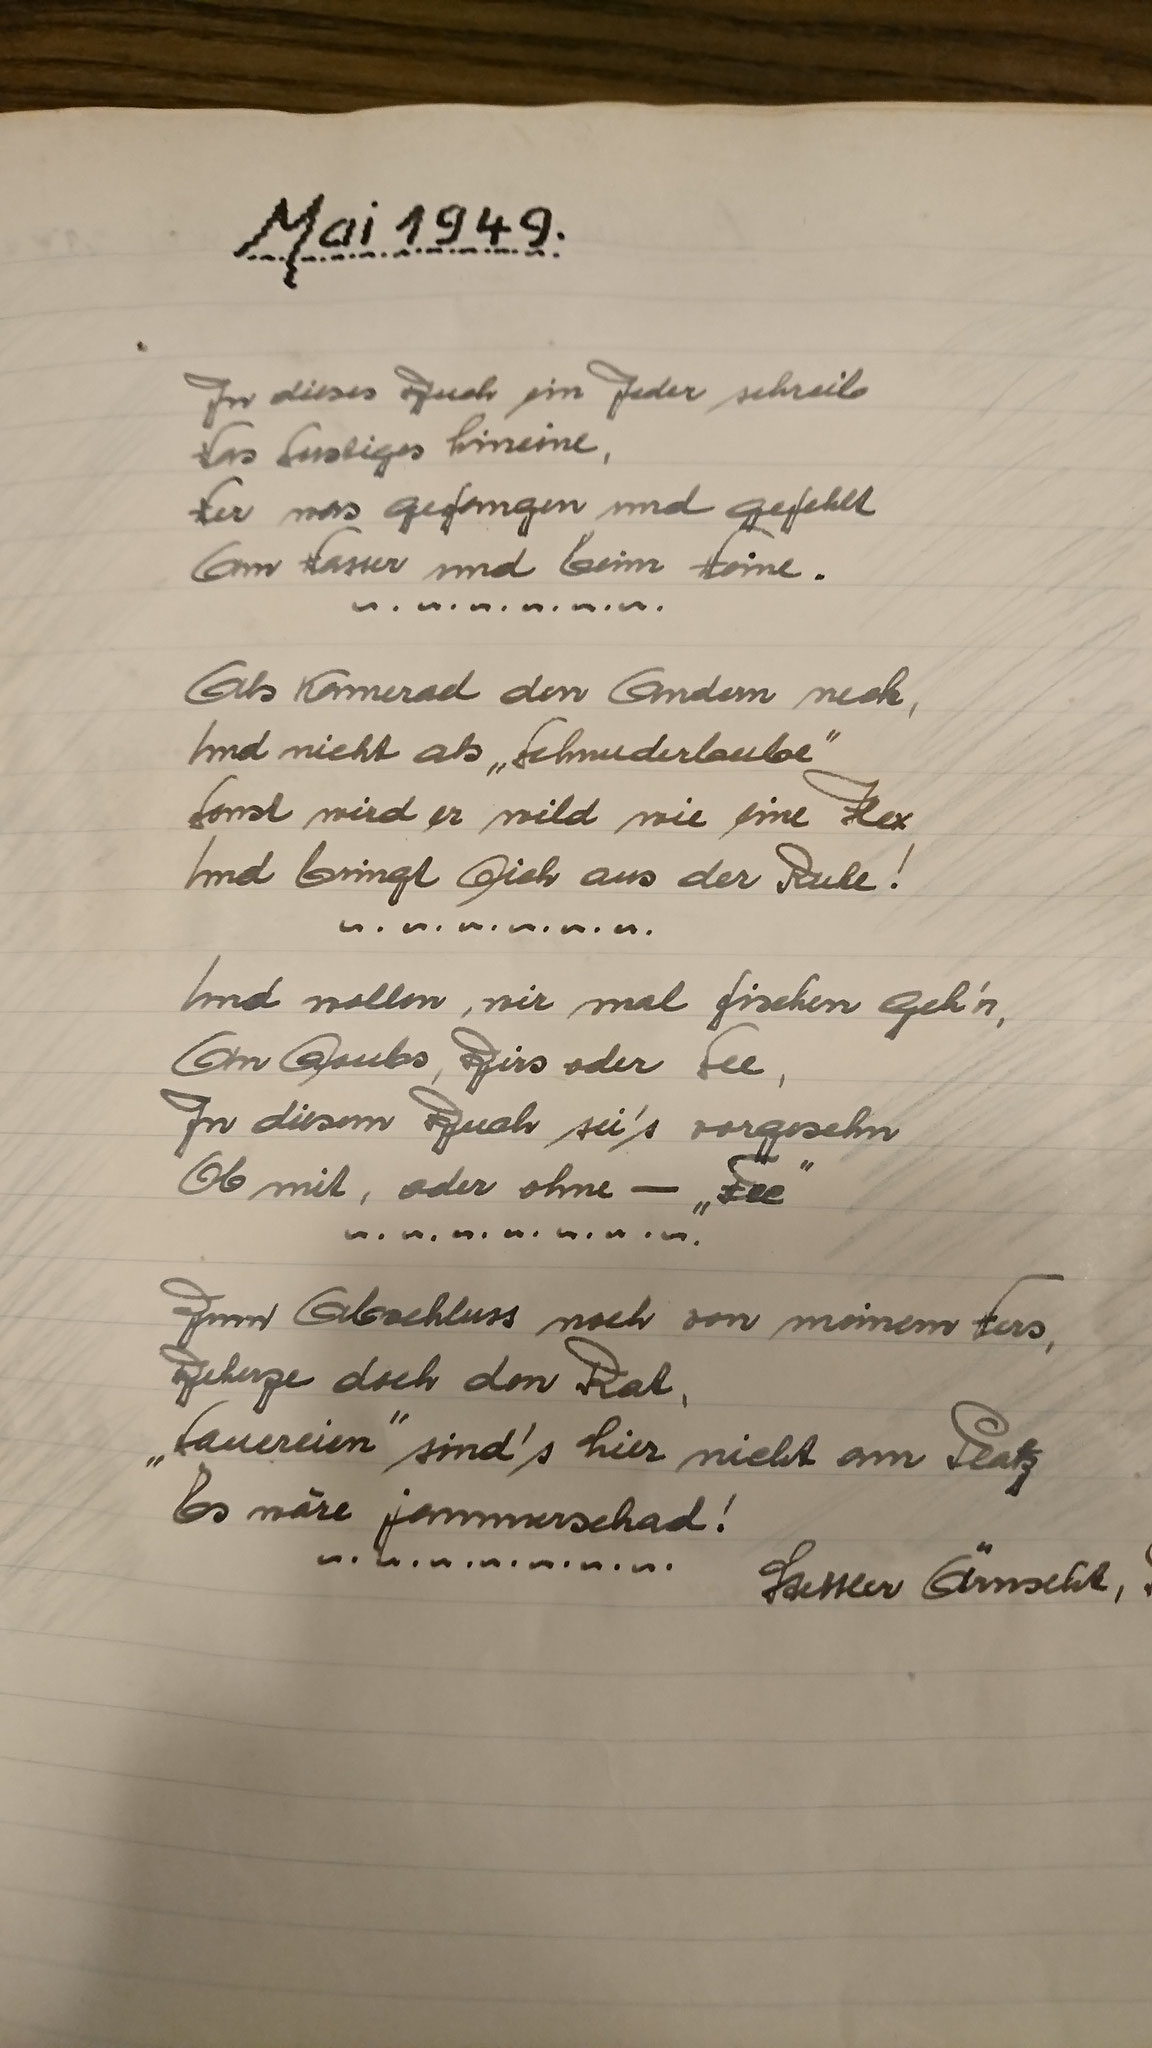 Mai 1949.
In dieses Buch ein Jeder schreib
Was Lustiges hineine,
Wer was gefangen und gefehlt
Am Wasser und beim Weine.
Als Kamerad den Andern neck,
Und nicht als „Schnuderbube"
Sonst wird er wild wie eine Hex
Und bringt Dich aus der Ruhe!
Und wollen, wir mal fischen geh'n,
An Doubs, Birs oder See,
In diesem Buch sei's vorgesehn
Ob mit, oder ohne — „Fee"
Zum Abschluss noch von meinem Vers,
Beherze doch den Rat,
„Sauereien" sind's hier nicht am Platz
Es wäre jammerschad!
Ärnscht,